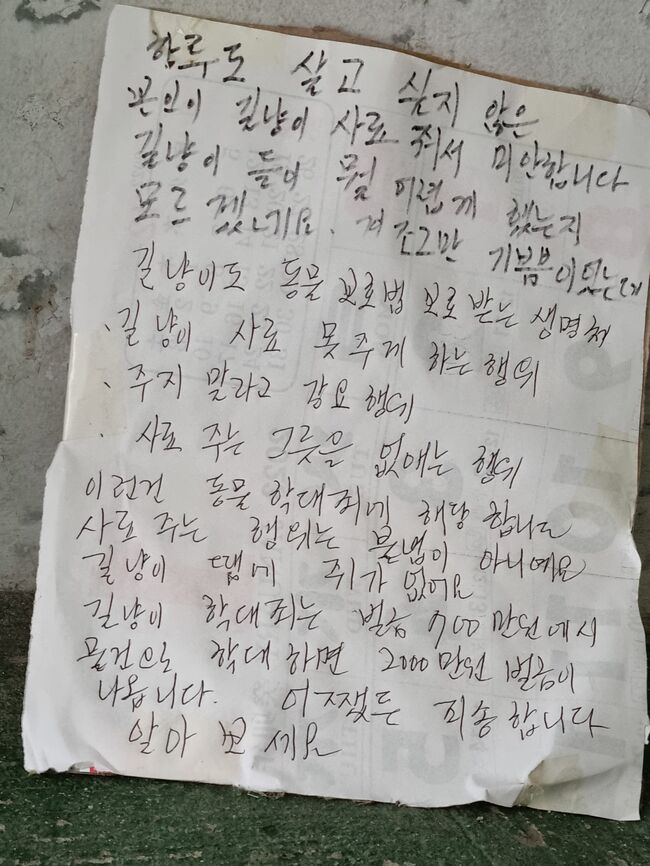 하루도 살고 싶지 않은
본인이 길냥이 사료 줘서 미안합니다
길냥이 들이 뭘 어렵게 했는지
모르 겠네요. 저 조그만 기쁨이었는데
길냥이도 동물 보호법 보로 받는 생명체
、길냥이 사료 못주게 하는 행위
、주지 말라고 강요 행위
、사료 주는 그릇을 없애는 행위
이런건 동물 학대죄에 해당 합니다
사료 주는 행위는 불법이 아니예요
길냥이 땜에 쥐가 없어요
길냥이 학대죄는 벌금 700만원에서
물건으로 학대 하면 2000만원 벌금이
나옵니다. 어쨌든 죄송합니다
알아 보세요